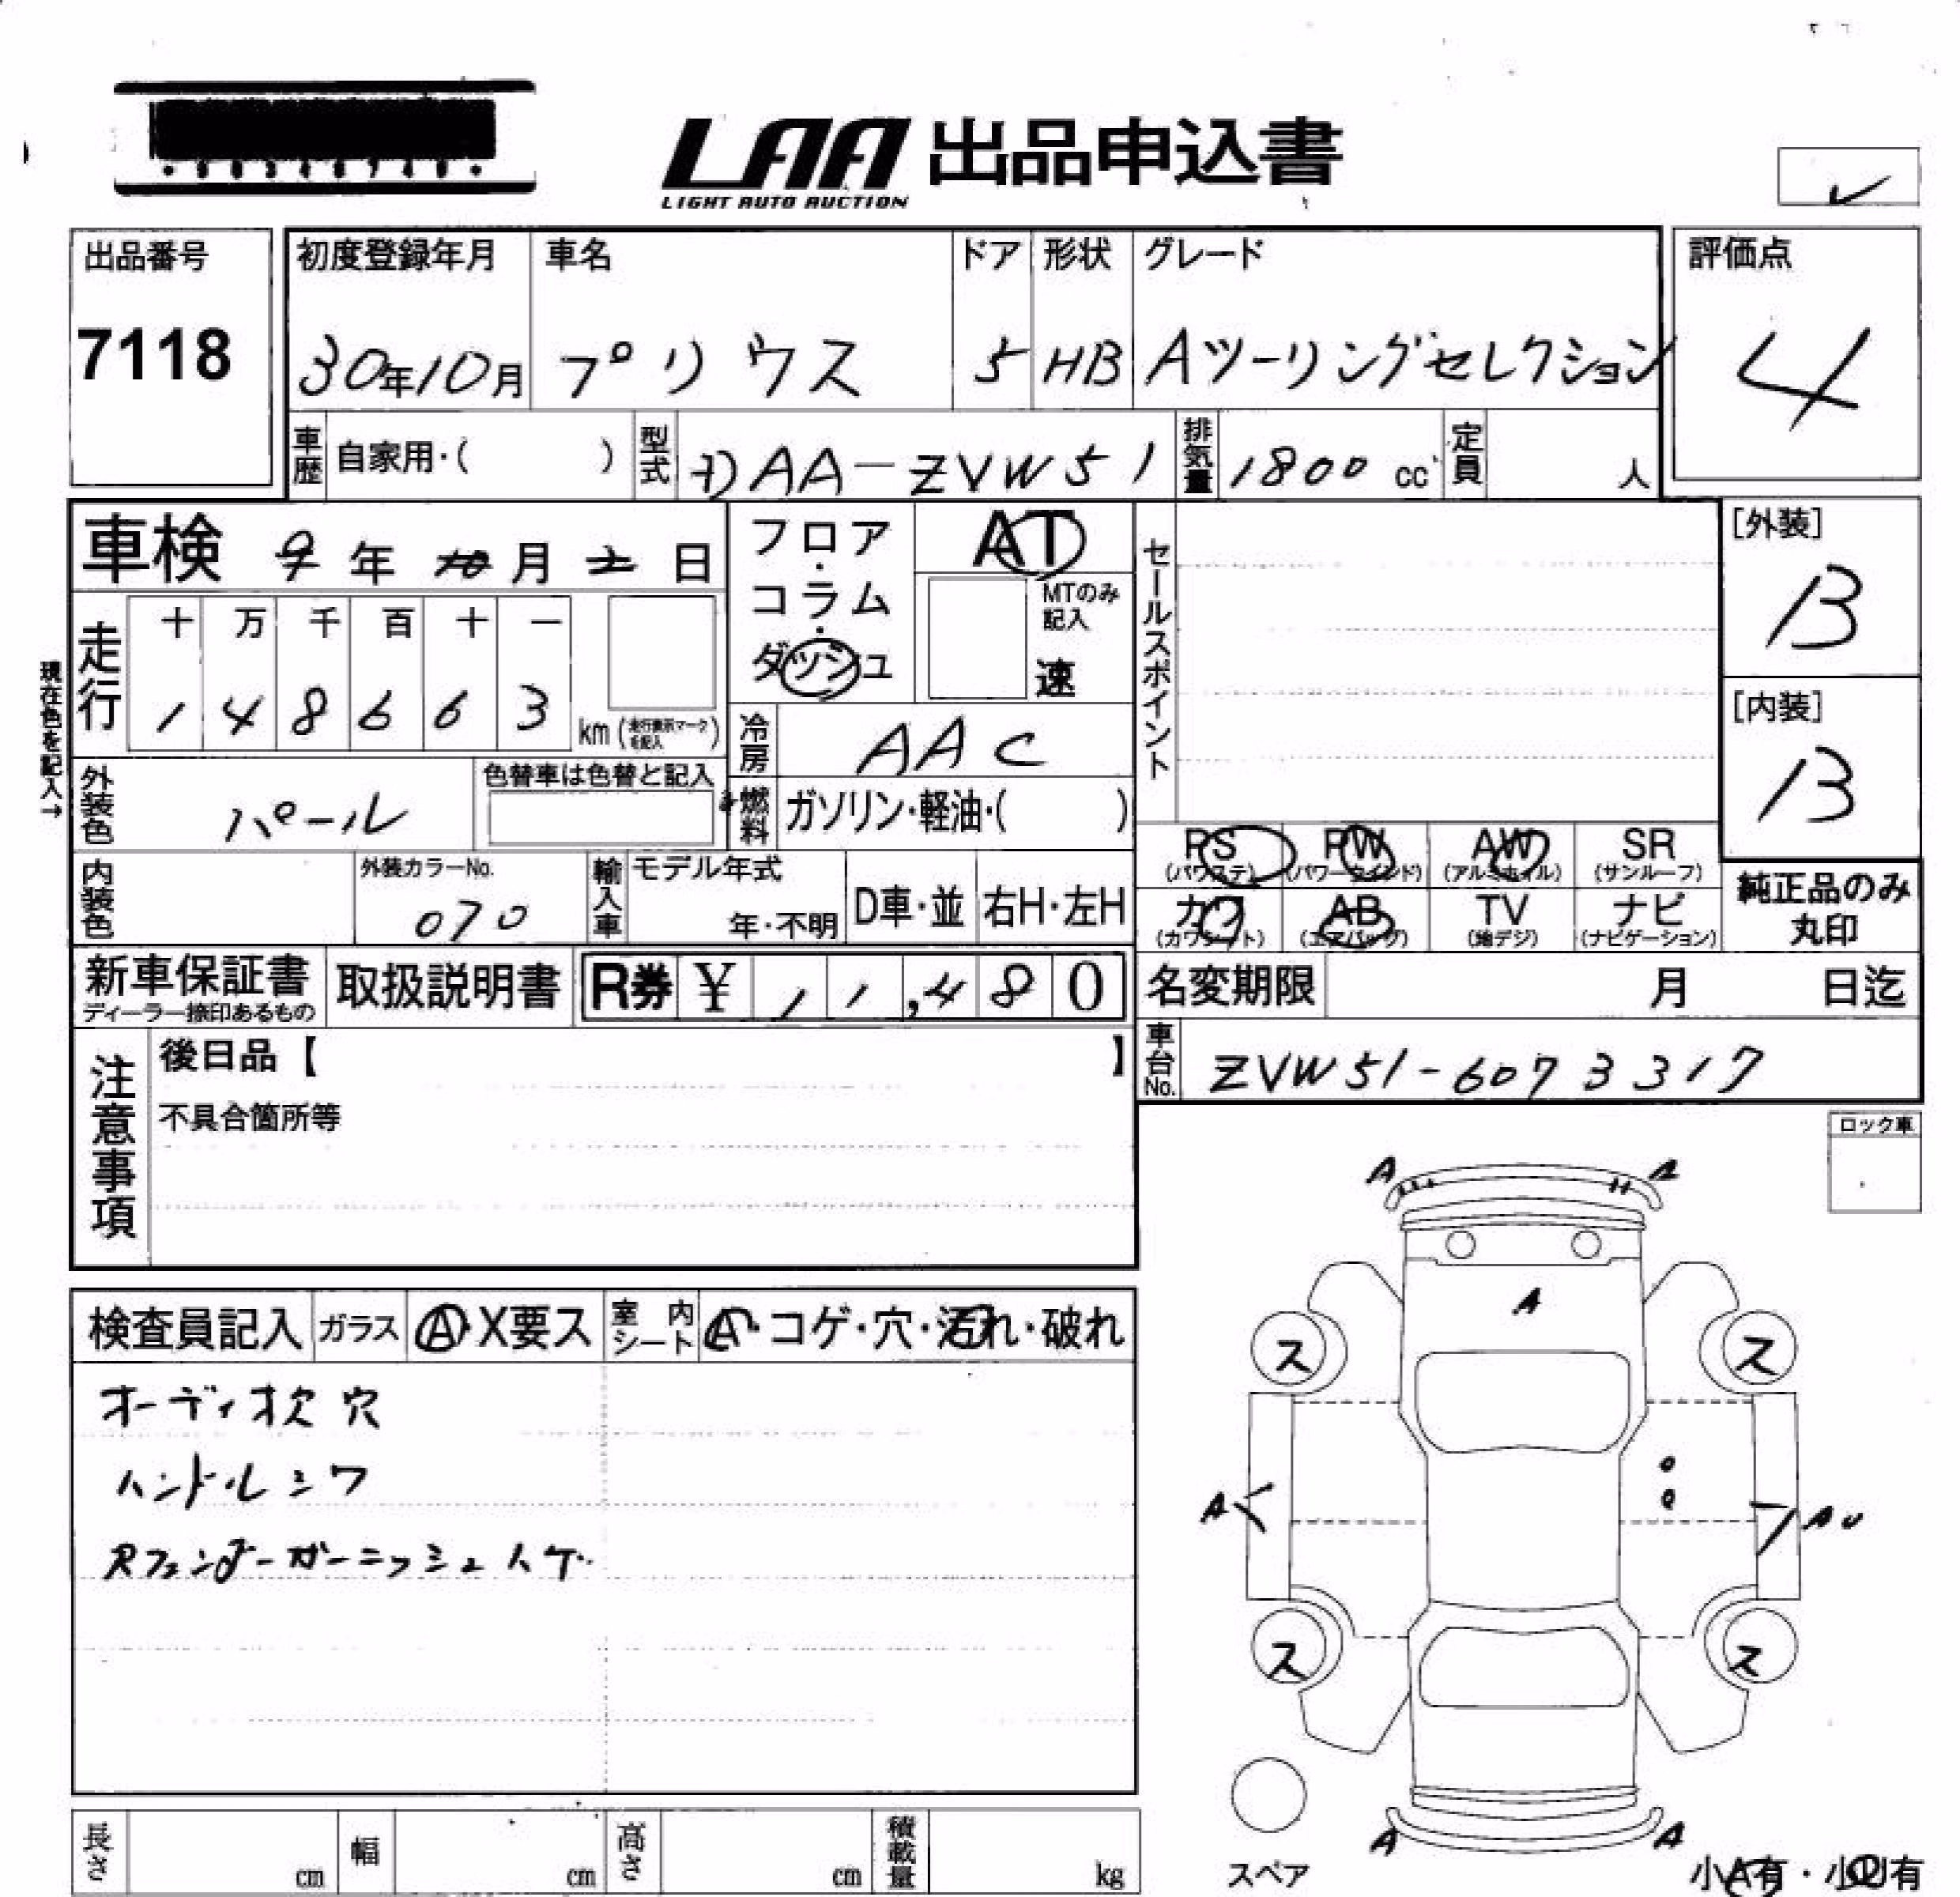 LAA 出品申込書
LIGHT AUTO AUCTION
出品番号
7118
初度登録年月 車名 ドア 形状 グレード
30年10月 プリウス 5 HB Aツーリングセレクション
評価点
4
車歴 自家用・( ) 型式 DAA-ZVW51 排気量 1800 cc 定員 人
車検 9年10月2日
フロア・コラム・ダッシュ
AT
MTのみ記入
速
セールスポイント
[外装]
B
[内装]
B
現在色を記入→
走行 十 万 千 百 十 一
1 4 8 6 6 3 km (走行表示マークを記入)
冷房 AAC
外装色 パール 色替車は色替と記入
燃料 ガソリン・軽油・( )
PS (パワステ) PW (パワーウインド) AW (アルミホイル) SR (サンルーフ)
カワ (カワシート) AB (エアバッグ) TV (地デジ) ナビ (ナビゲーション)
純正品のみ丸印
内装色 外装カラーNo. 070 輸入車 モデル年式 年・不明 D車・並 右H・左H
新車保証書 ディーラー捺印あるもの 取扱説明書 R券 ¥ 11,480
名変期限 月 日迄
車台No. ZVW51-6073317
注意事項
後日品【 】
不具合箇所等
ロック車
検査員記入 ガラス A・X要ス 室内シート A・コゲ・穴・汚れ・破れ
オーディオ欠 穴
ハンドルシワ
Rフェンダーガーニッシュハゲ
A A
A
ス ス
A AU
ス ス
A A
スペア
小A有・小U有
長さ cm 幅 cm 高さ cm 積載量 kg